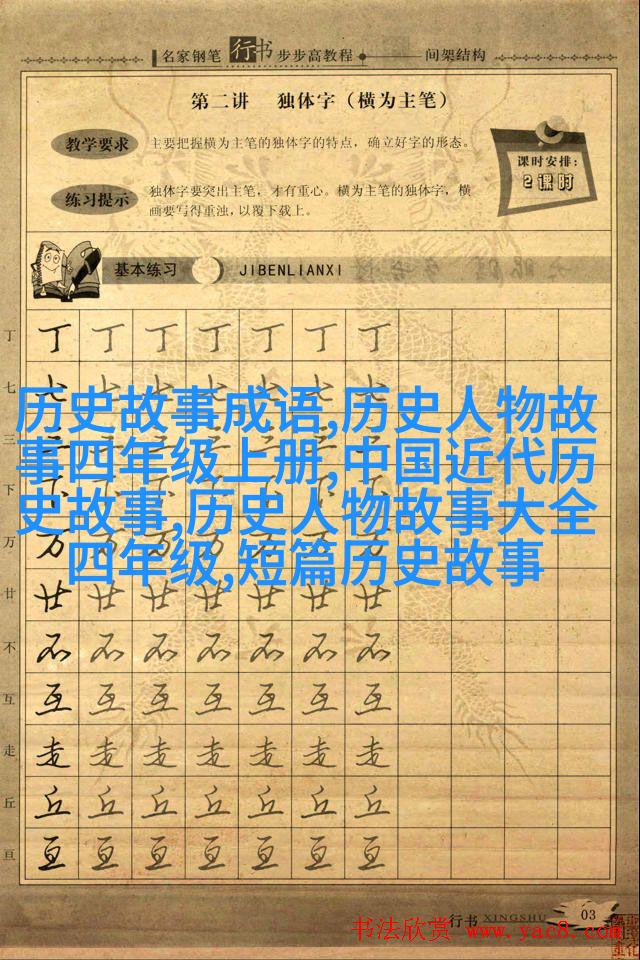 名家钢笔行书步步高教程 间架结构
第二讲 独体字（横为主笔）
教学要求
主要把握横为主笔的独体字的特点，确立好字的形态。
课时安排：
2课时
练习提示
独体字要突出主笔，才有重心。横为主笔的独体字，横
画要写得重浊，以覆下载上。
基本练习 JIBENLIANXI
丁 丁 丁 丁 丁 丁 丁 丁
七 七 七 七 七 七 七 七
历史故事成语,历史人物故
事四年级上册,中国近代历
史故事,历史人物故事大全
四年级,短篇历史故事
三
下
万 万 万 万 万 万 万 万
廿 廿 廿 廿 廿 廿 廿 廿
不 不 不 不 不 不 不 不
互 互 互 互 互 互 互 互
走 走 走 走 走 走 走 走
丘 丘 丘 丘 丘 丘 丘 丘
亘 亘 亘 亘 亘 亘 亘 亘
行书 XINGSHU 03
书法欣赏 www.yac8.com